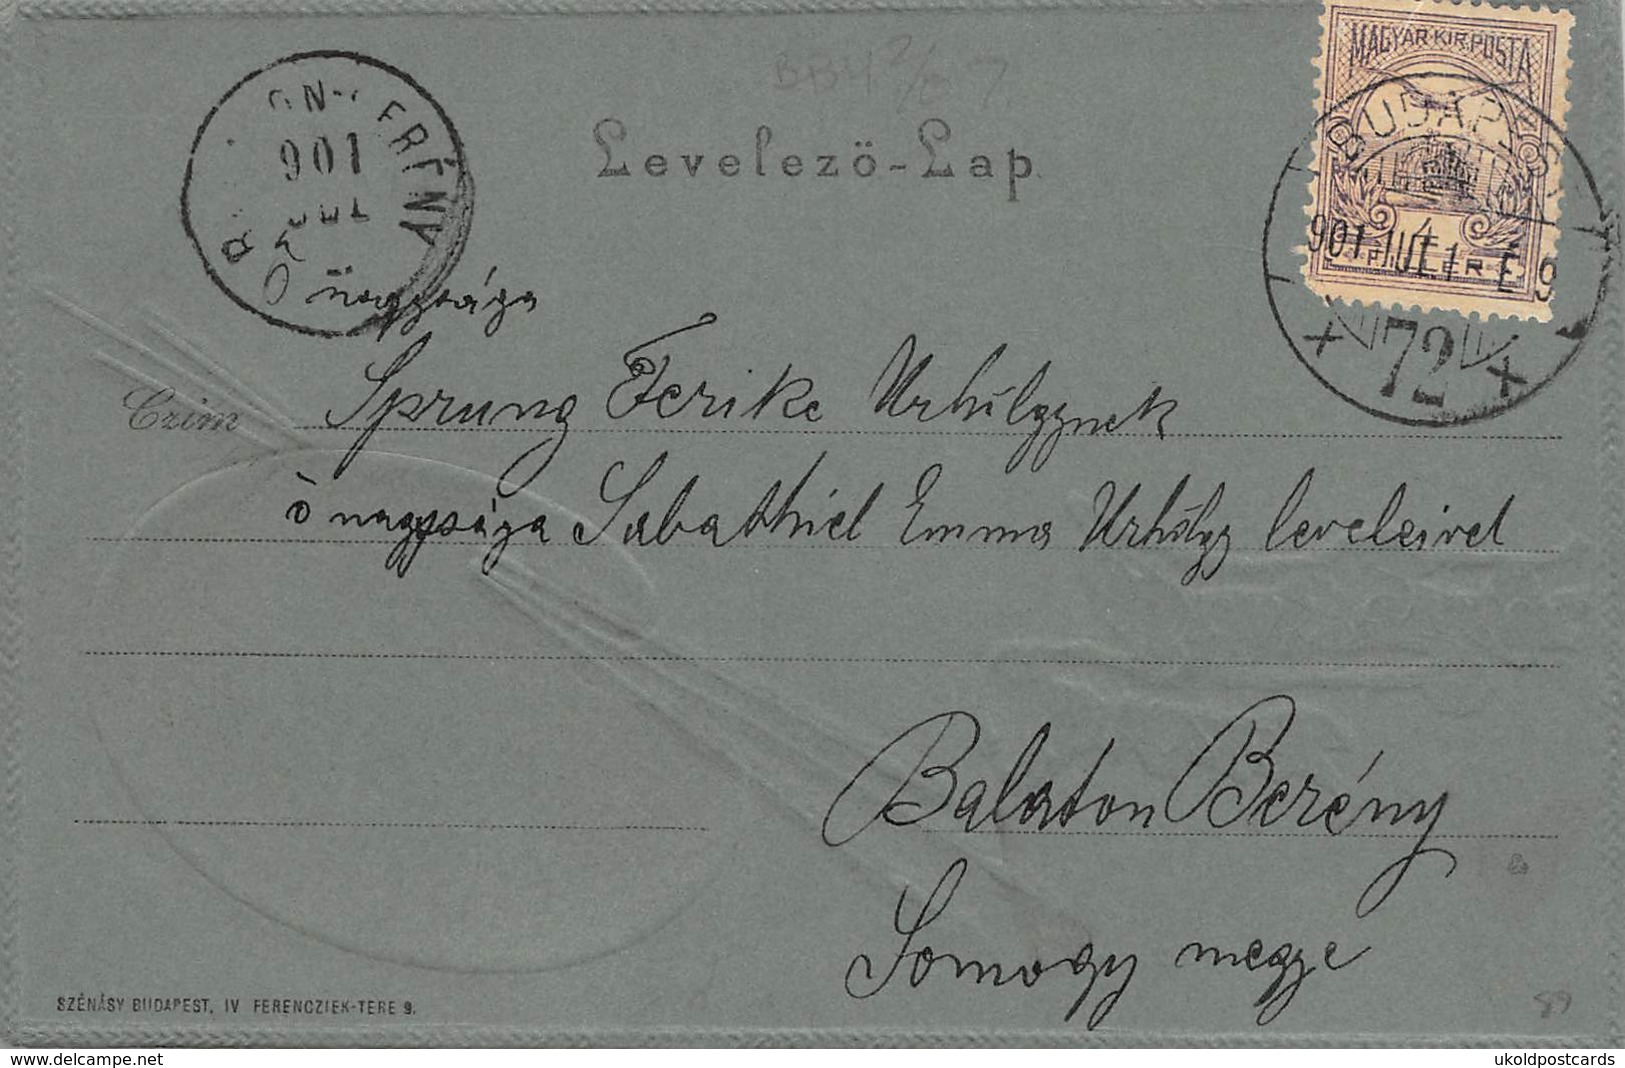 Levelező-Lap
MAGYAR·KIR·POSTA
BUDAPEST
901 JUL 1 É 9
72
901
JUL
Ő nagysága
Czim Sprung Ferike Urhölgynek
ő nagysága Sabathiel Emma Urhölgy leveleivel
Balaton Berény
Somogy megye
89
SZÉNÁSY BUDAPEST, IV FERENCZIEK-TERE 9.
www.delcampe.net
ukoldpostcards